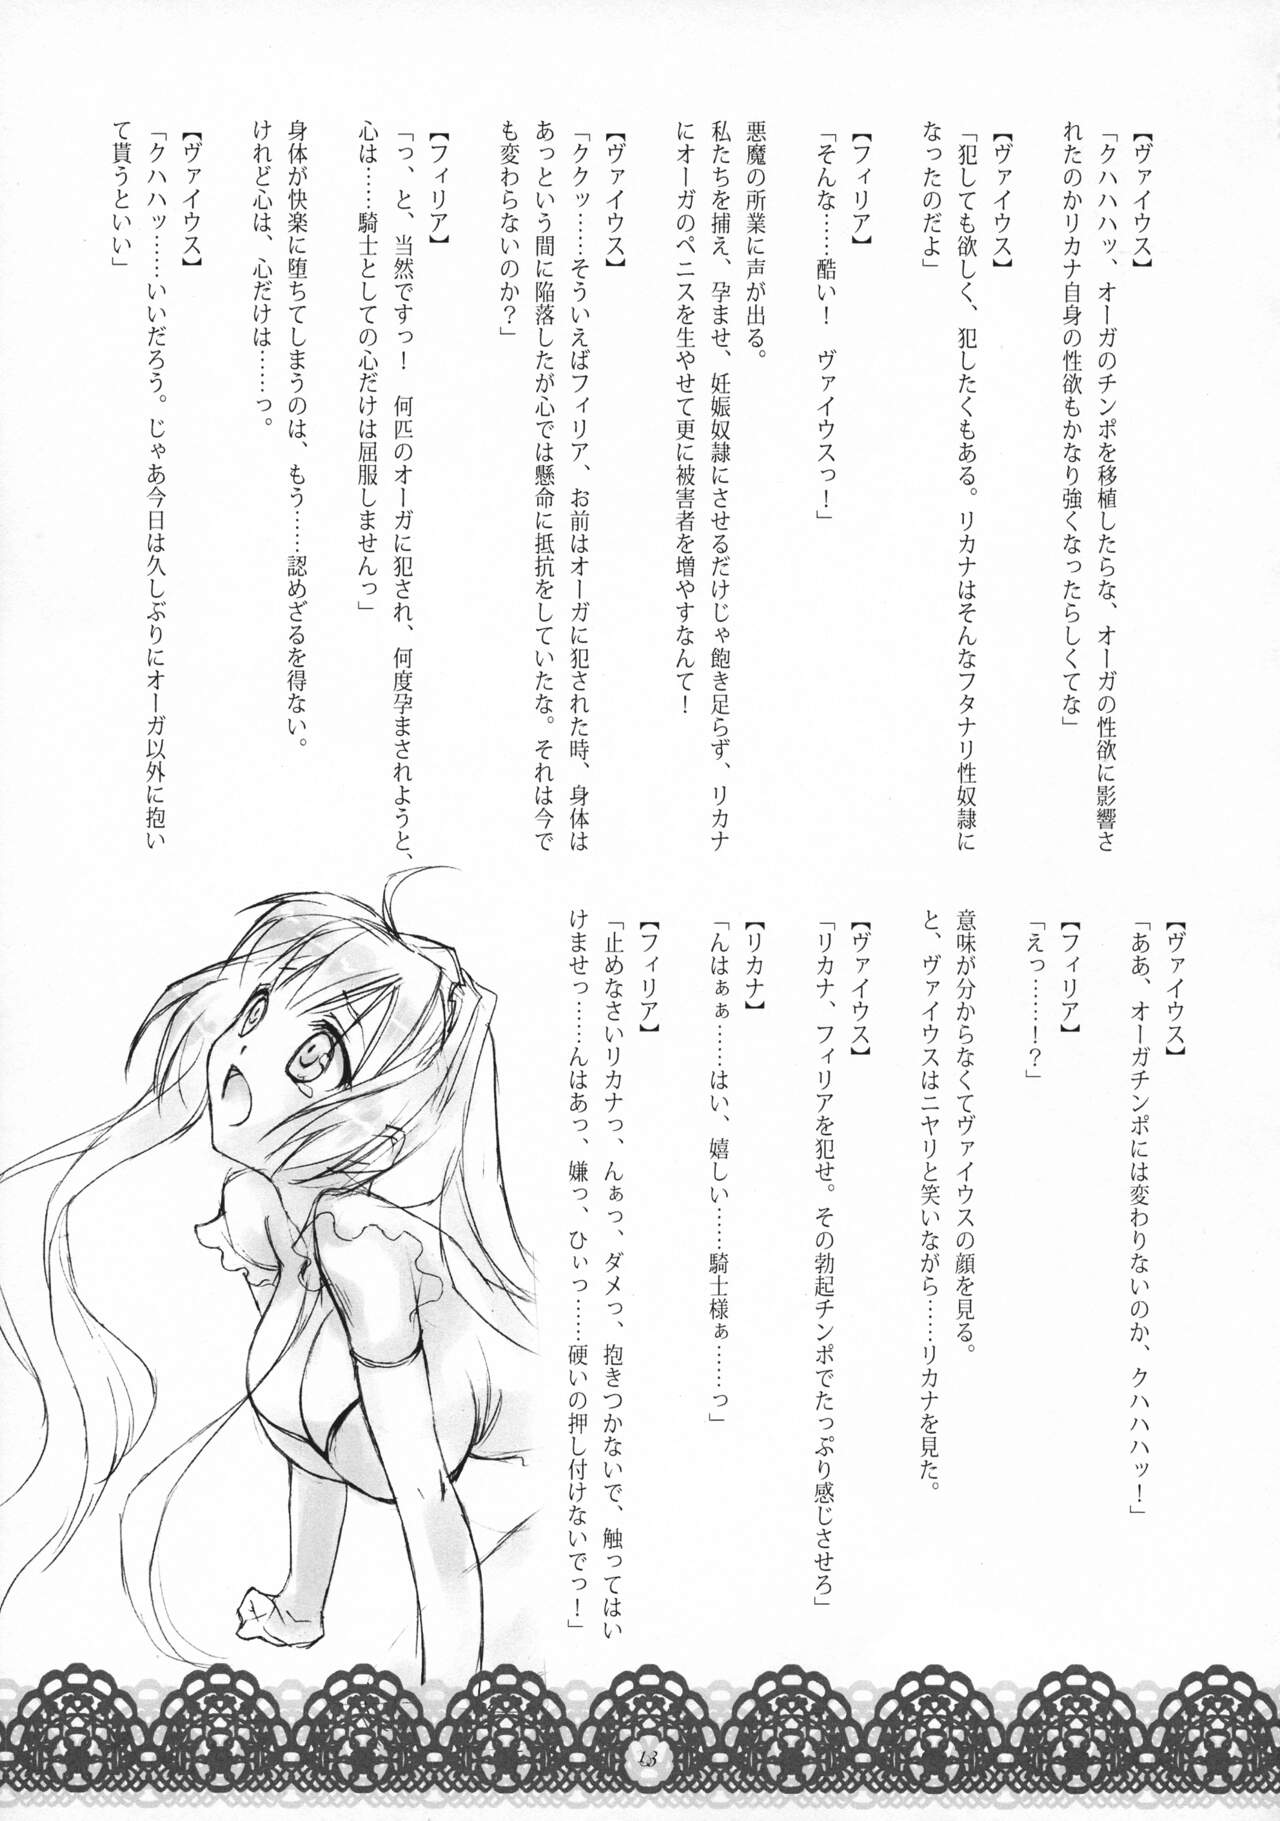 【ヴァイウス】
「クハハハッ、オーガのチンポを移植したらな、オーガの性欲に影響さ
れたのかリカナ自身の性欲もかなり強くなったらしくてな」
【ヴァイウス】
「犯しても欲しく、犯したくもある。リカナはそんなフタナリ性奴隷に
なったのだよ」
【フィリア】
「そんな……酷い!　ヴァイウスっ!」
悪魔の所業に声が出る。
私たちを捕え、孕ませ、妊娠奴隷にさせるだけじゃ飽き足らず、リカナ
にオーガのペニスを生やせて更に被害者を増やすなんて!
【ヴァイウス】
「ククッ……そういえばフィリア、お前はオーガに犯された時、身体は
あっという間に陥落したが心では懸命に抵抗をしていたな。それは今で
も変わらないのか?」
【フィリア】
「っ、と、当然ですっ!　何匹のオーガに犯され、何度孕まされようと、
心は……騎士としての心だけは屈服しませんっ」
身体が快楽に堕ちてしまうのは、もう……認めざるを得ない。
けれど心は、心だけは……っ。
【ヴァイウス】
「クハハッ……いいだろう。じゃあ今日は久しぶりにオーガ以外に抱い
て貰うといい」
【ヴァイウス】
「ああ、オーガチンポには変わりないのか、クハハハッ!」
【フィリア】
「えっ……!?」
意味が分からなくてヴァイウスの顔を見る。
と、ヴァイウスはニヤリと笑いながら……リカナを見た。
【ヴァイウス】
「リカナ、フィリアを犯せ。その勃起チンポでたっぷり感じさせろ」
【リカナ】
「んはぁぁ……はい、嬉しい……騎士様ぁ……っ」
【フィリア】
「止めなさいリカナっ、んぁっ、ダメっ、抱きつかないで、触ってはい
けませっ……んはあっ、嫌っ、ひぃっ……硬いの押し付けないでっ!」
13